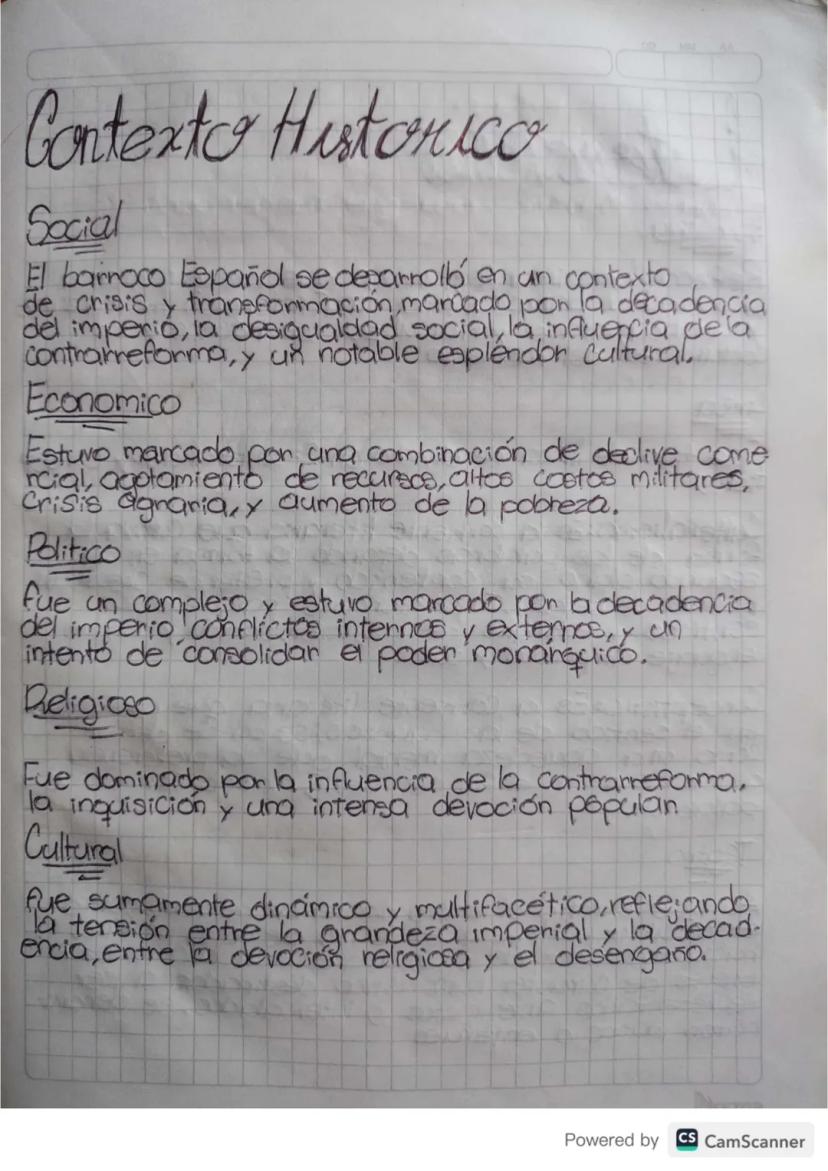 Contexto Historico
Social
El barroco Español se desarrolló en un contexto
de crisis y transformación, marcado por la decadencia
del imperio, la desigualdad social, la influencia de la
contrarreforma, y un notable esplendor cultural.
Economico
Estuvo marcado por una combinación de declive come
rcial, agotamiento de recursos, altos costos militares,
crisis agraria, y aumento de la pobreza.
Politico
fue un complejo y estuvo marcado por la decadencia
del imperio, conflictos internos y externos, y un
intento de consolidar el poder monárquico.
Religioso
Fue dominado por la influencia de la contrarreforma,
la inquisición y una intensa devoción popular
Cultural
fue sumamente dinámico y multifacético, reflejando
la tensión entre la grandeza imperial y la decad-
encia, entre la devoción religiosa y el desengaño.
Powered by CS CamScanner